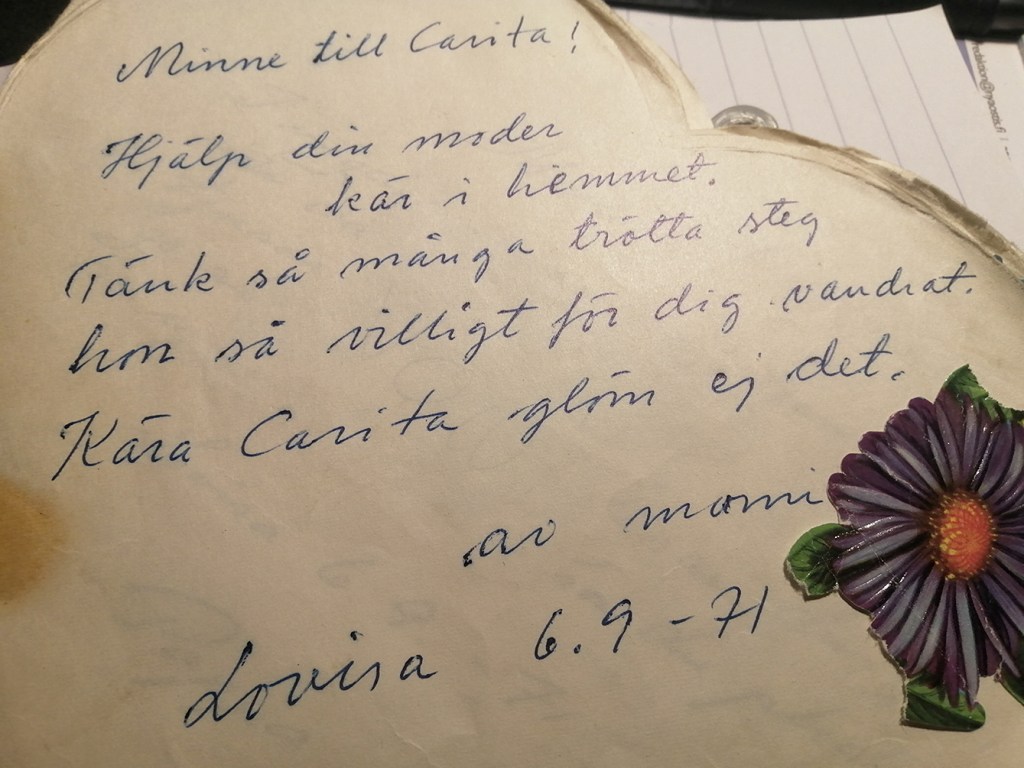 Minne till Carita!
Hjälp din moder
kär i hemmet.
Tänk så många trötta steg
hon så villigt för dig vandrat.
Kära Carita glöm ej det.
av momi
Lovisa 6.9-71